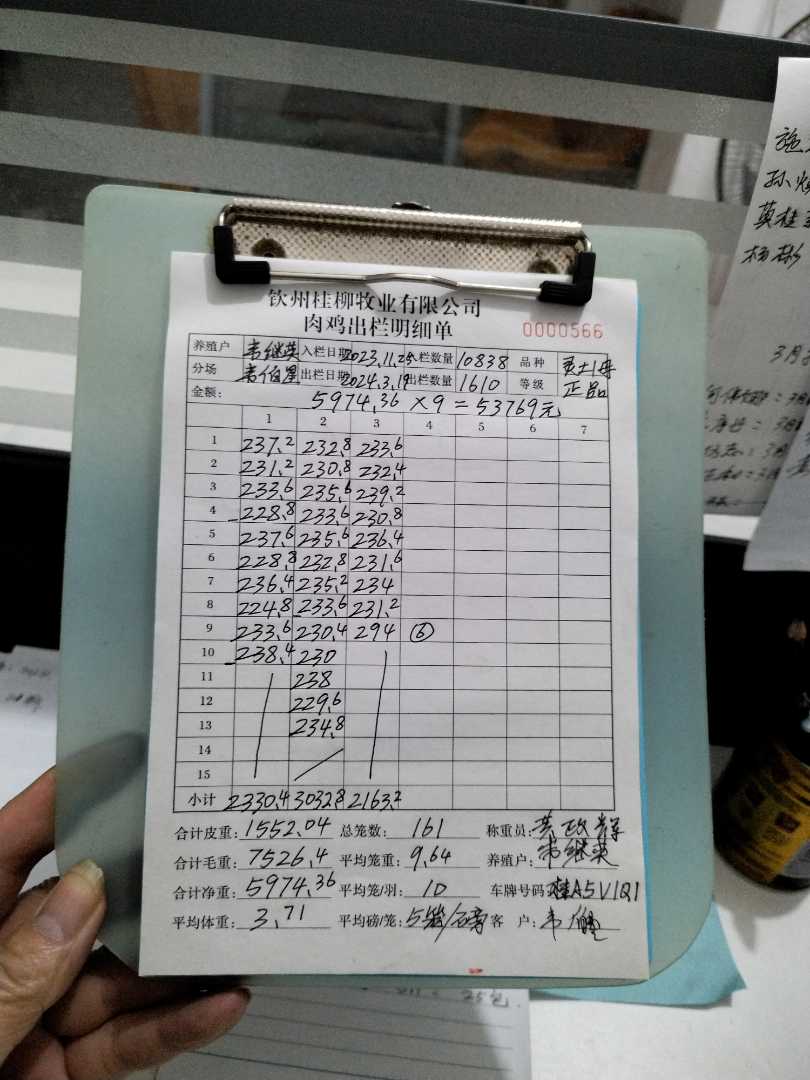 钦州桂柳牧业有限公司
肉鸡出栏明细单 0000566
养殖户 韦继英 入栏日期 2023.11.25 入栏数量 10838 品种
分场 出栏日期 2024.3.19 出栏数量 1610 等级 正品
金额: 5974.36 ×9 = 53769元
1 2 3 4 5 6 7
1 237.2 232.8 233.6
2 231.2 230.8 232.4
3 233.6 235.6 239.2
4 228.8 233.6 230.8
5 237.6 235.6 236.4
6 228.8 232.8 231.6
7 236.4 235.2 234
8 224.8 233.6 231.2
9 233.6 230.4 294 ⑥
10 238.4 230
11 238
12 229.6
13 234.8
14
15
小计 2330.4 3032.8 2163.2
合计皮重: 1552.04 总笼数: 161 称重员:
合计毛重: 7526.4 平均笼重: 9.64 养殖户: 韦继英
合计净重: 5974.36 平均笼/羽: 10 车牌号码: 桂A5V1Q1
平均体重: 3.71 平均磅/笼: 客 户:
3月
25包